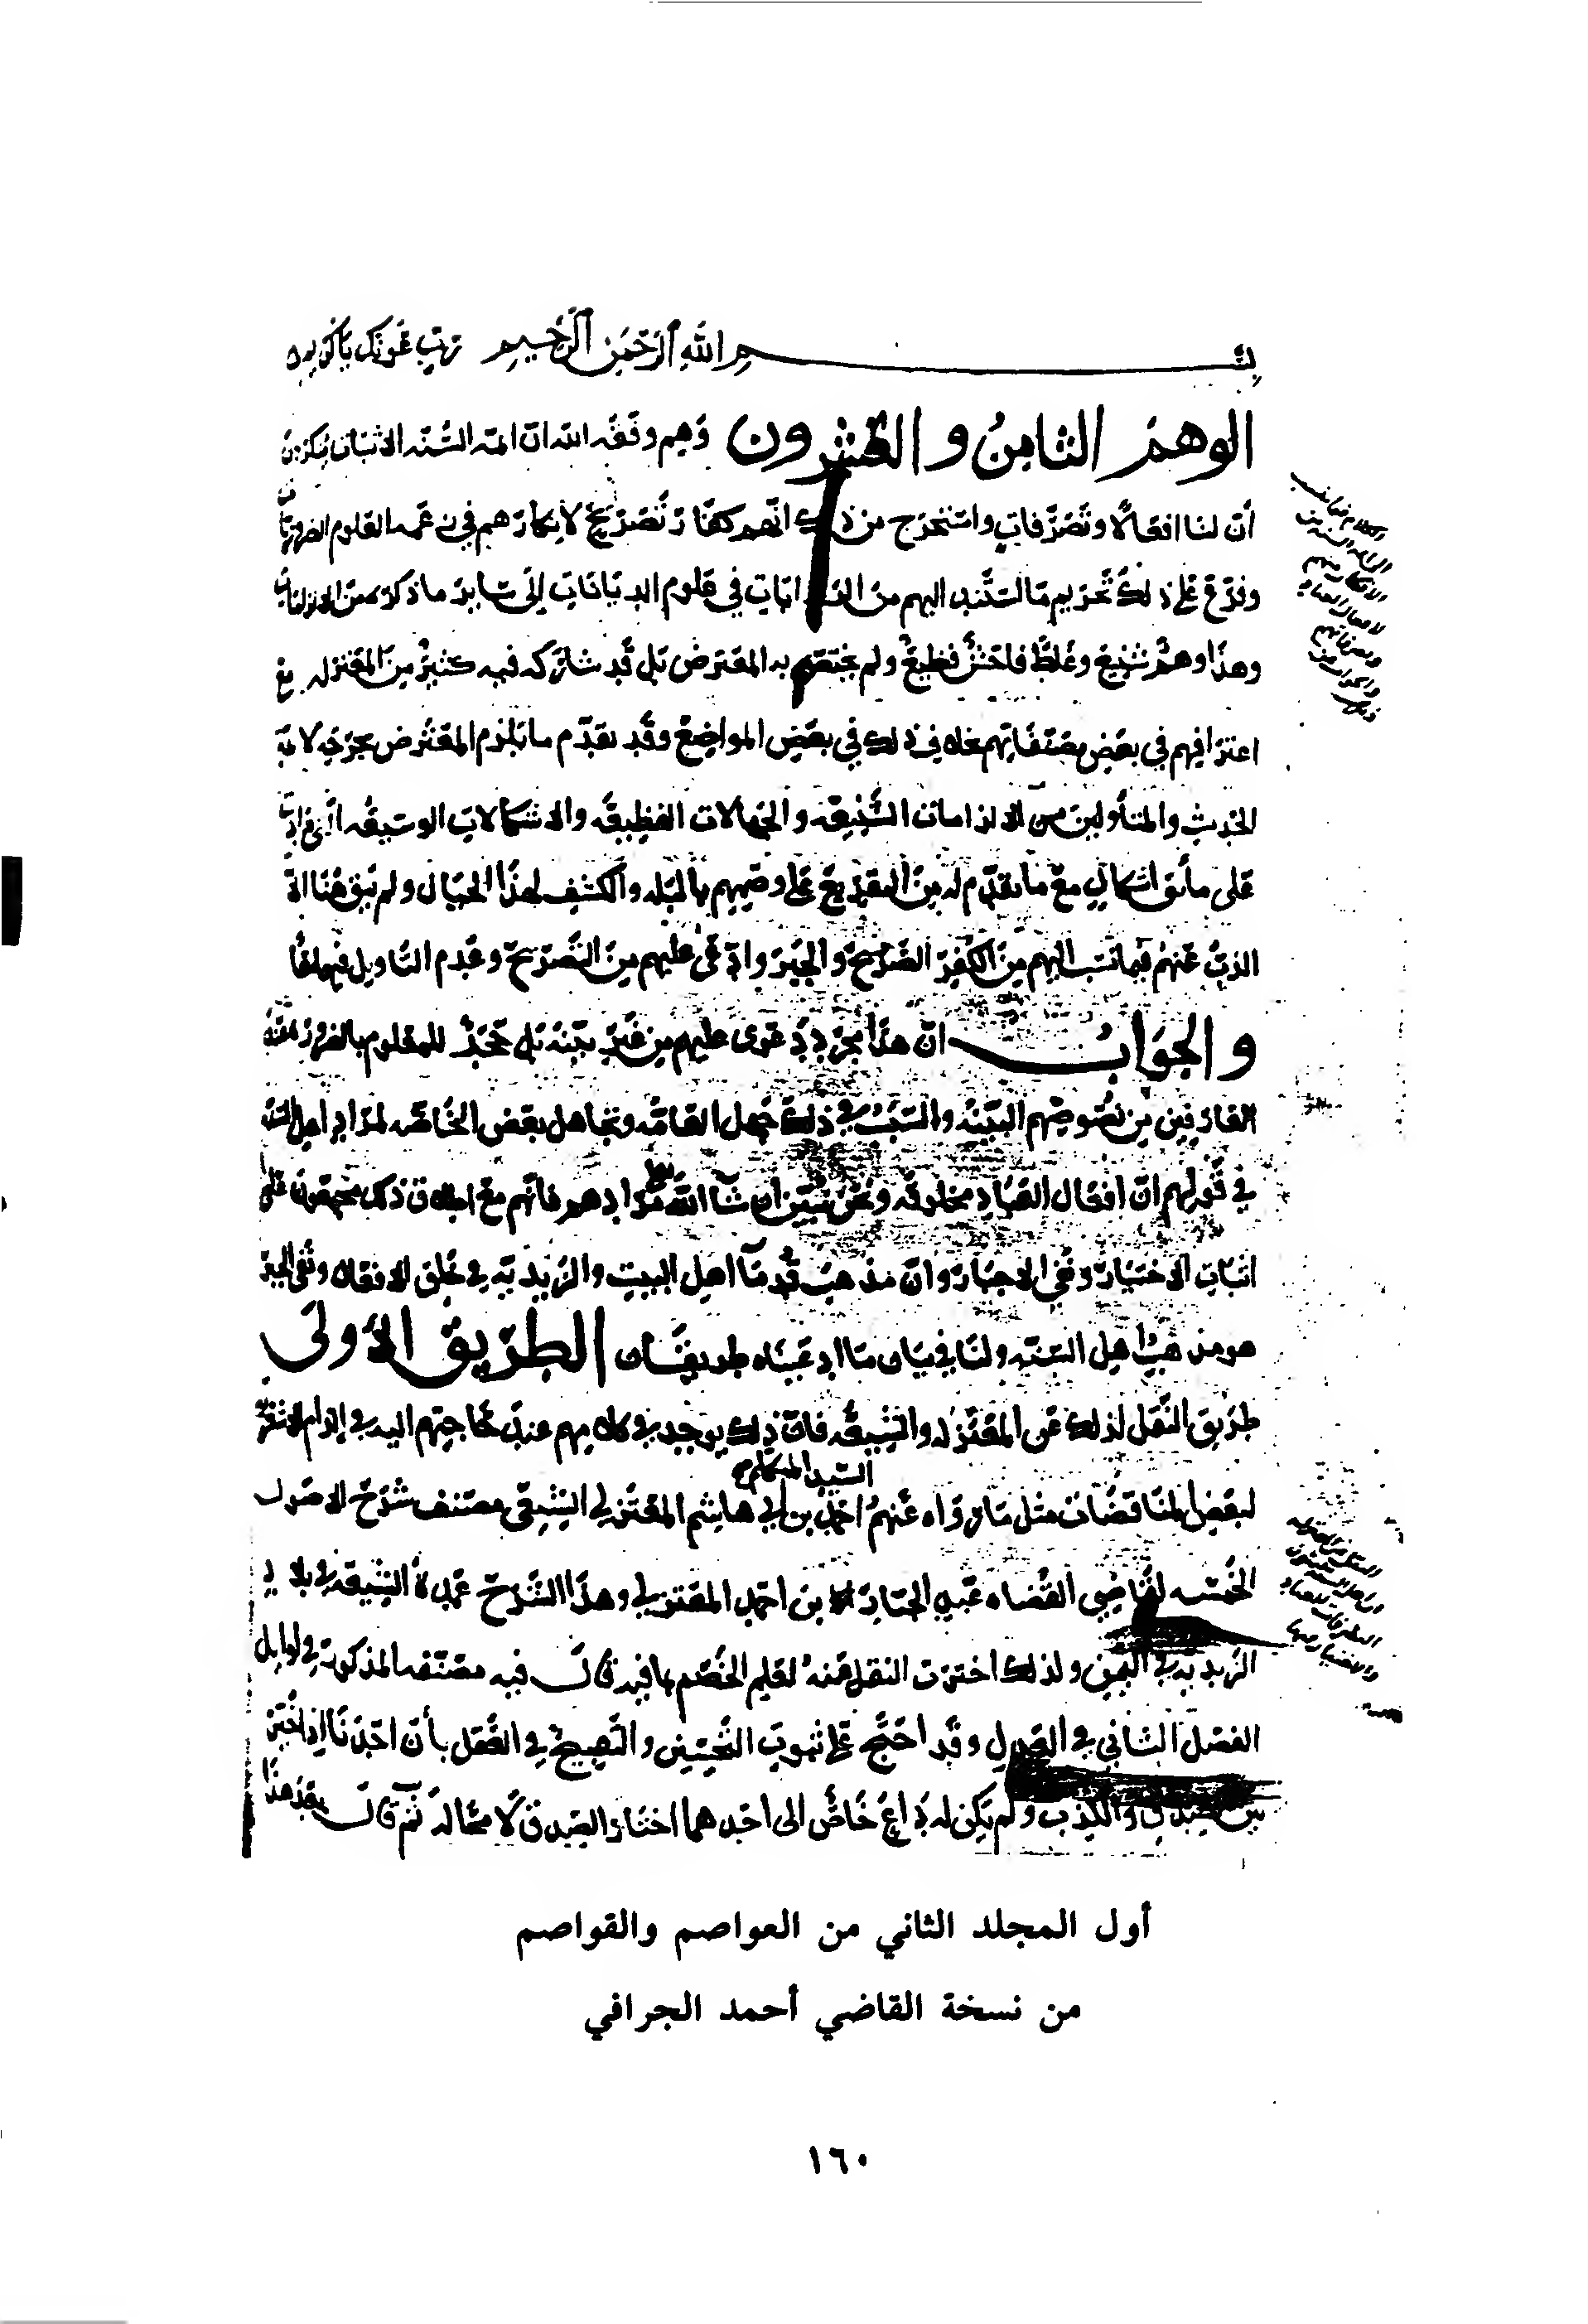 بسم الله الرحمن الرحيم رب عونك يا كريم
الوهم الثامن والعشرون وهم وفقه الله ان ائمة السنه الاثبات ينكرون
أن لنا افعالًا وتصرفاتٍ واستخرج من ذلك انهم كفار تصريح لانكارهم في زعمه العلوم الضروريات
وفرع على ذلك تحريم ما استند اليهم من الروايات في علوم الديانات إلى ساير ما ذكره من الالزامات
وهذا وهم شنيع وغلط فاحش فظيع ولم يختص به المعترض بل قد شاركه فيه كثير من المعتزله مع
اعترافهم في بعض مصنفاتهم بخلاف ذلك في بعض المواضع وقد تقدم ما يلزم المعترض بجرحه لائمة
الحديث والمتأولين من الالزامات الشنيعه والجهالات الفظيعه والاشكالات الوسيعه التي زادت
على مائتي اشكال مع ما تقدم له من التقريع على وصيهم بالبله والكشف لهذا الخيال ولم يبق هنا الا
الذب عنهم فيما نسب اليهم من الكفر الصريح والجبر وادعى عليهم من التصريح وعدم التاويل فيهما معًا
والجواب ان هذا مجرد دعوى عليهم من غير بينة بل جحد للمعلوم بالضرورة عند
العارفين من نصوصهم البينه والسبب في ذلك جهل العامه وتجاهل بعض الخاصه لمراد اهل السنه
في قولهم ان افعال العباد مخلوقه ونحن نبين ان شاء الله تعالى مرادهم فانهم مع اطلاق ذلك مجمعون على
اثبات الاختيار ونفي الاجبار وان مذهب قدماء اهل البيت والزيدية في خلق الافعال ونفي الجبر
هو مذهب اهل السنه ولنا في بيان ما ادعيناه طريقان الطريق الأولى
طريق النقل لذلك عن المعتزله والشيعه فان ذلك يوجد في كلامهم عند حاجتهم اليه في الزام الاشعريه
لبعض المناقضات مثل ما رواه عنهم السيد المتكلم احمد بن ابي هاشم المعتزلي الشيعي مصنف شرح الاصول
الخمسه لقاضي القضاه عبد الجبار بن احمد المعتزلي وهذا الشرح عمدة الشيعه في بلاد
الزيديه في اليمن ولذلك اخترت النقل منه لعلم الخصم بما فيه قال فيه مصنفه المذكور في اوايل
الفصل الثاني في العدل وقد احتج على ثبوت التحسين والتقبيح في العقل بأن احدنا اذا خير
بين الصدق والكذب ولم يكن له داع خاص الى احدهما اختار الصدق لا محاله ثم قال بعد هذا
أول المجلد الثاني من العواصم والقواصم
من نسخة القاضي أحمد الجرافي
١٦٠